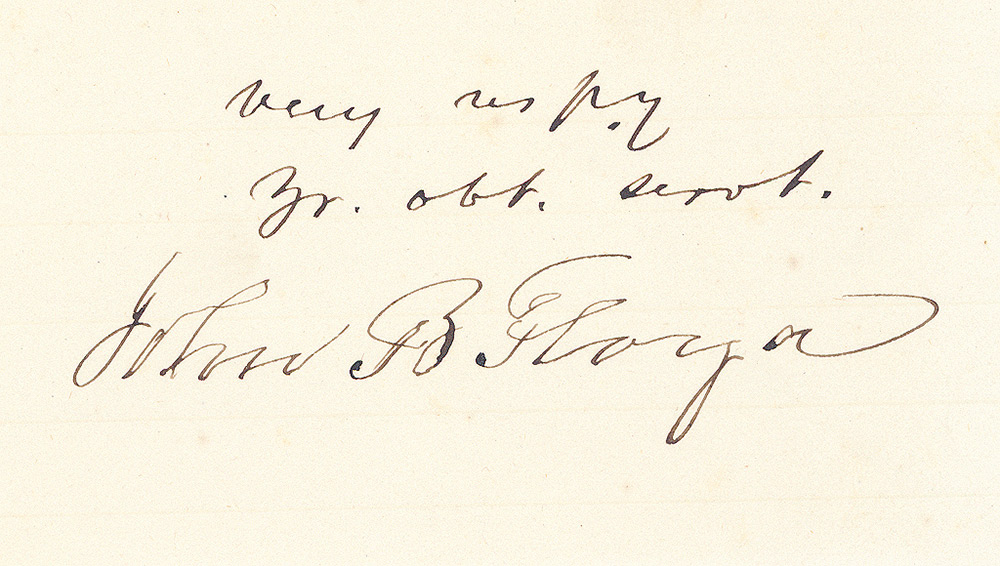 very resp.y
Yr. obt. servt.
John B Floyd